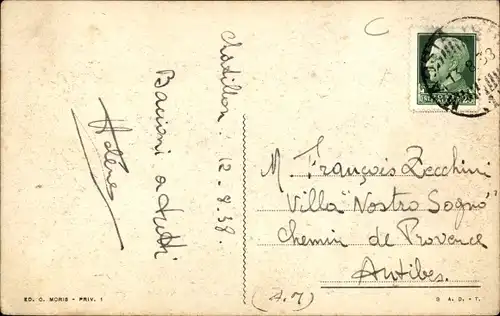 Chatillon. 12-8-38.
Bacioni a tutti
C
M. François Zecchini
Villa "Nostro Sogno"
Chemin de Provence
Antibes.
(A.M)
ED. C. MORIS - PRIV. I